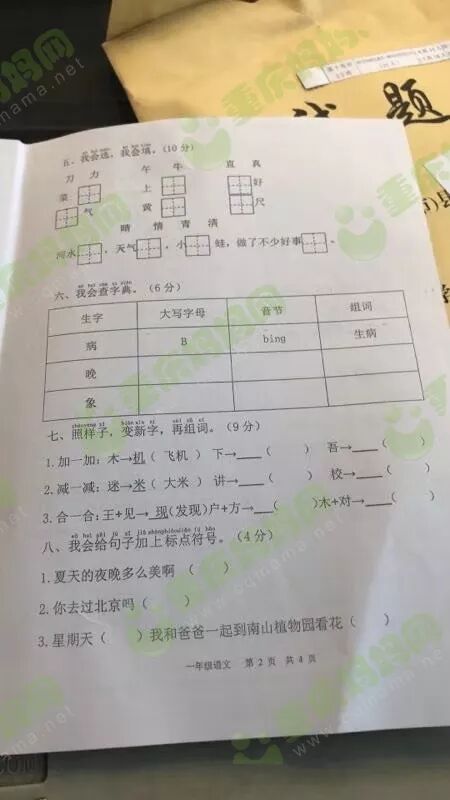 试 题
五、我会选，我会填。(10分)
刀 力 午 牛 直 真
菜 上 好
气 黄 尺
晴 情 青 清
河水 ，天气 ，小 蛙，做了不少好事 。
六、我会查字典。(6分)
生字 大写字母 音节 组词
病 B bìng 生病
晚
象
七、照样子，变新字，再组词。(9分)
1.加一加：木→机( 飞机 ) 下→___( ) 吾→___( )
2.减一减：迷→米( 大米 ) 讲→___( ) 校→___( )
3.合一合：王+见→现(发现)户+方→___( )木+对→___( )
八、我会给句子加上标点符号。(4分)
1.夏天的夜晚多么美啊 ( )
2.你去过北京吗( )
3.星期天 ( )我和爸爸一起到南山植物园看花( )
一年级语文 第 2 页 共 4 页
重庆妈妈网
www.cqmama.net